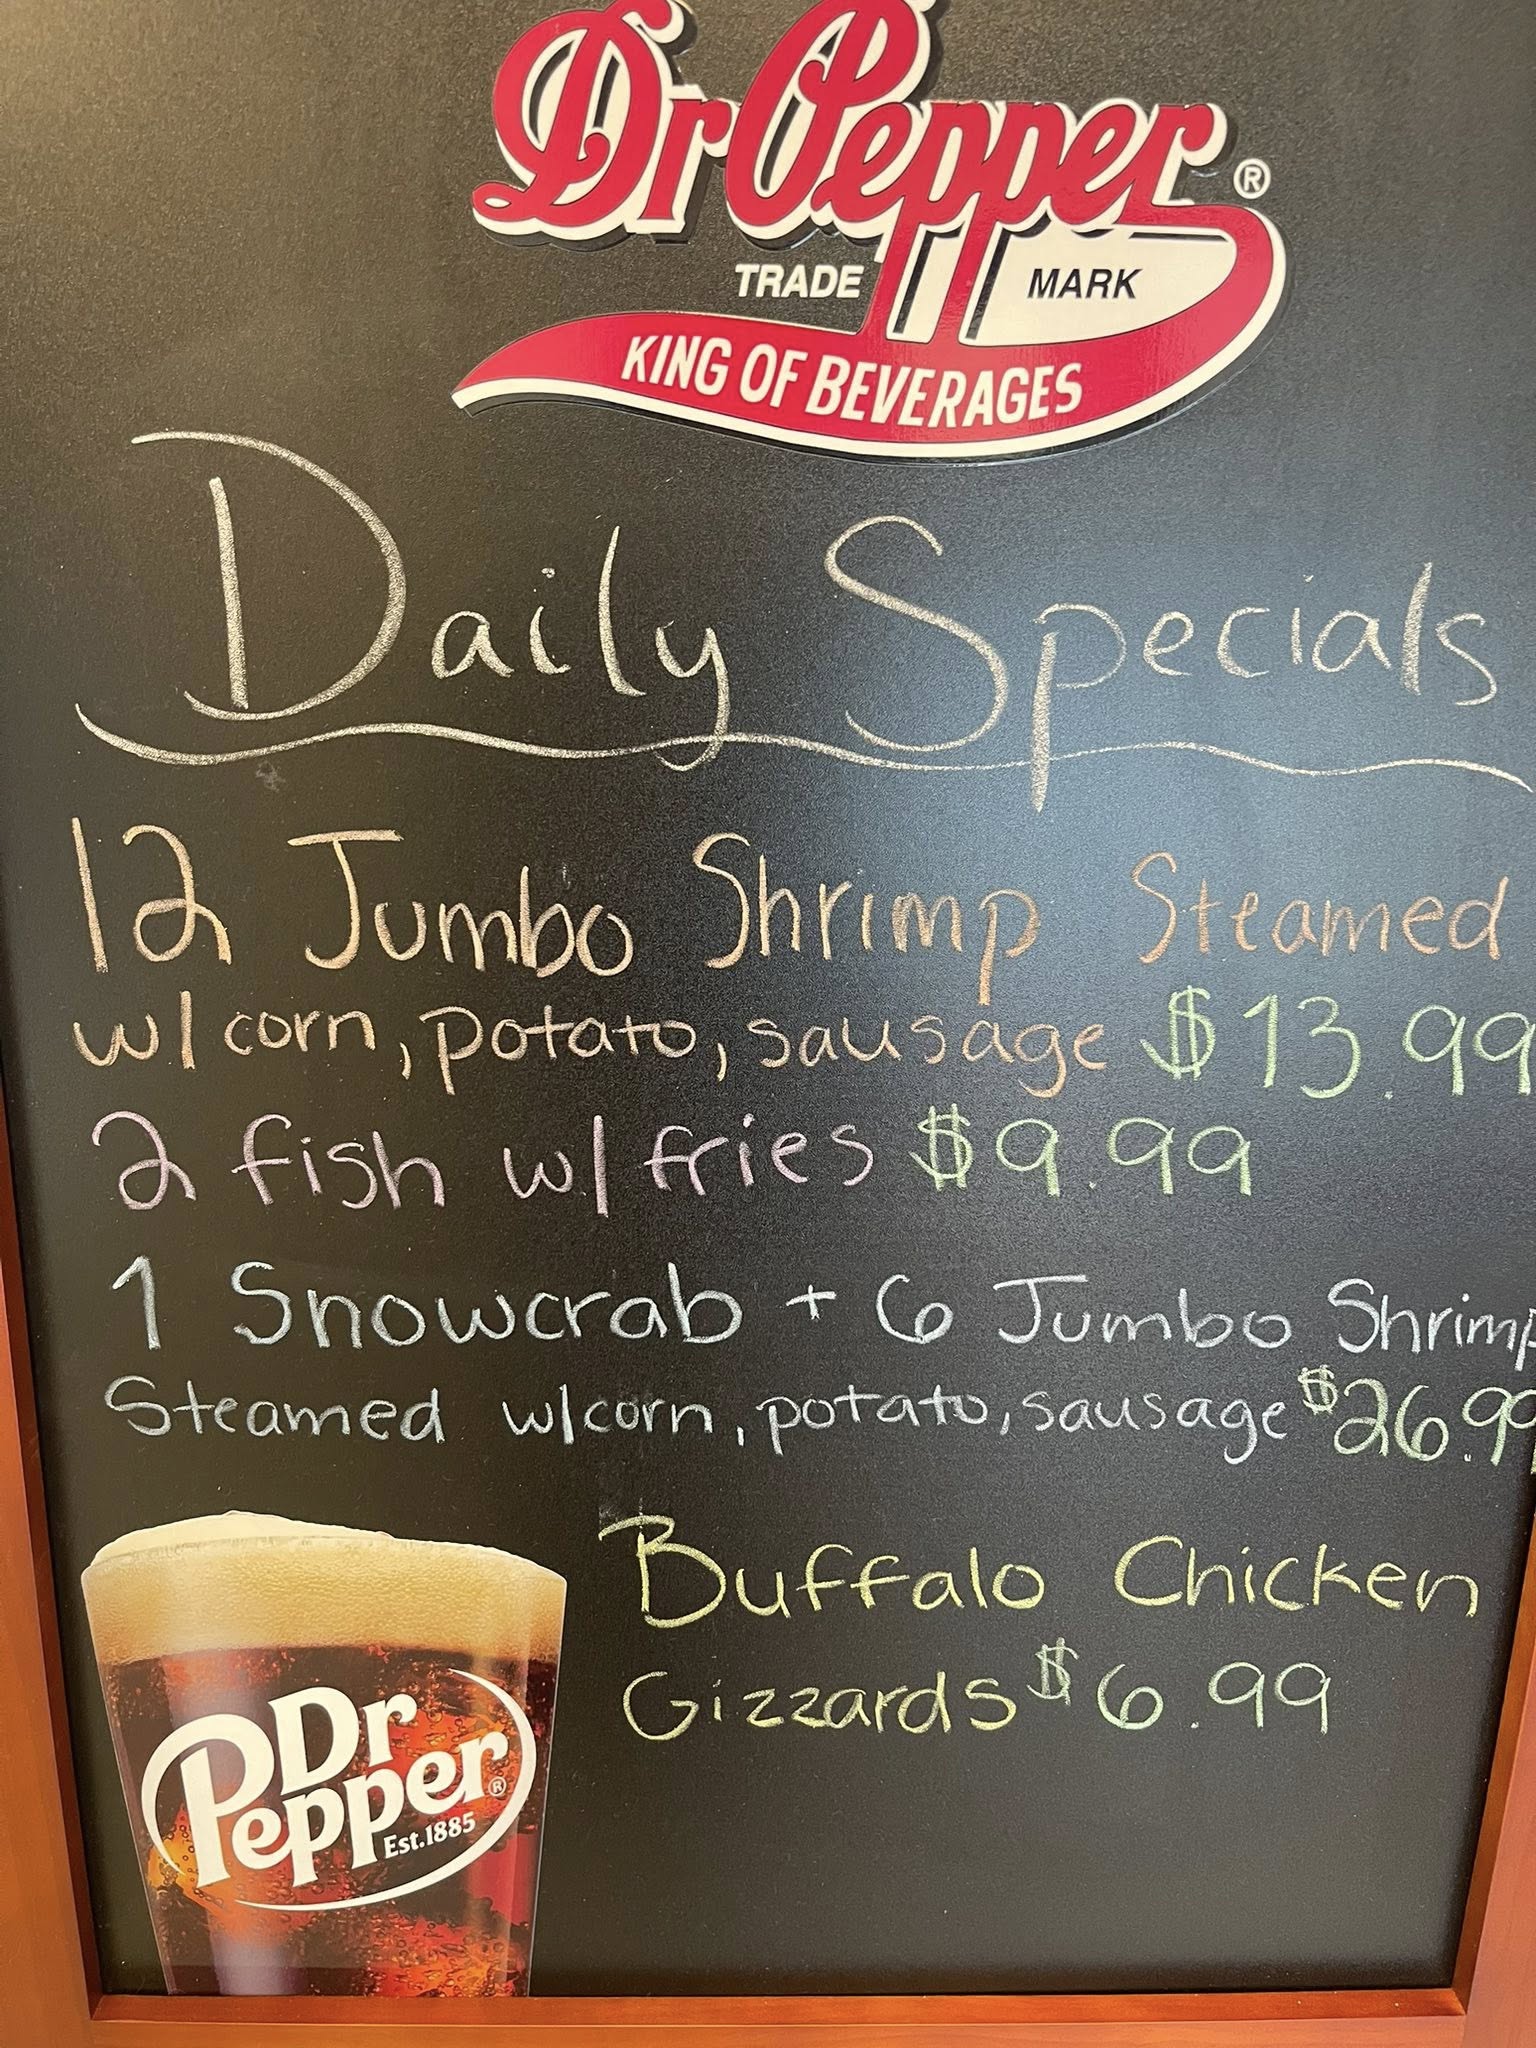 Dr Pepper ®
TRADE MARK
KING OF BEVERAGES
Daily Specials
12 Jumbo Shrimp Steamed
w/corn, potato, sausage $13.99
2 fish w/fries $9.99
1 Snowcrab + 6 Jumbo Shrimp
Steamed w/corn, potato, sausage $26.99
Buffalo Chicken
Gizzards $6.99
Dr
Pepper®
Est.1885